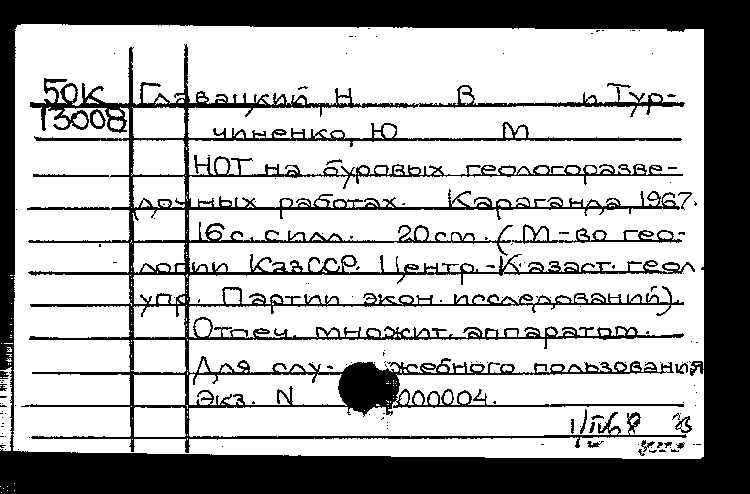 50К Главацкий, Н В и Тур-
13008 чиненко, Ю М
НОТ на буровых геологоразве-
дочных работах. Караганда, 1967.
16 с. с илл. 20 см. (М-во гео-
логии КазССР. Центр.-Казахст. геол.
упр. Партии экон. исследований).
Отпеч. множит. аппаратом.
Для слу- жебного пользования
Экз. N 000004.
1/IV68